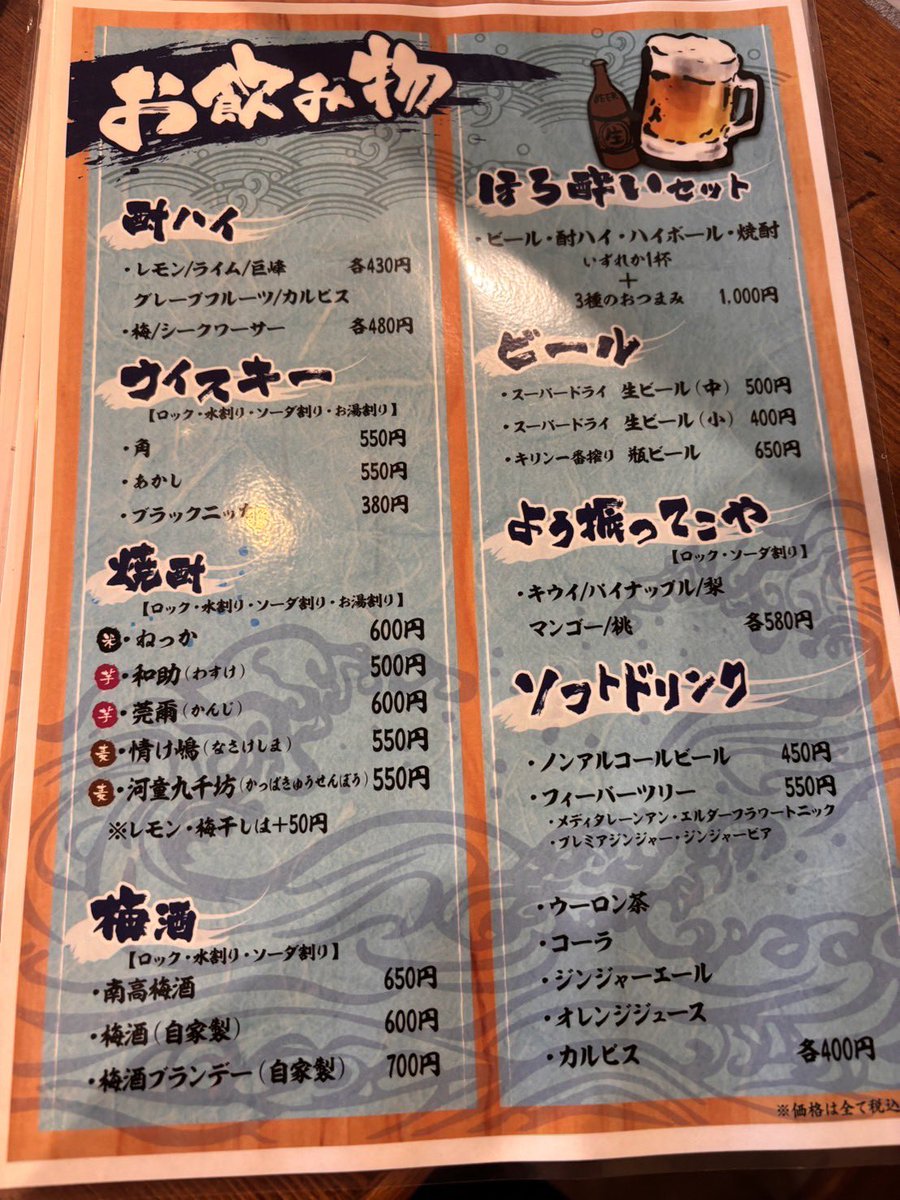 お飲み物
酎ハイ
・レモン/ライム/巨峰 各430円
グレープフルーツ/カルピス
・梅/シークワーサー 各480円
ウイスキー
【ロック・水割り・ソーダ割り・お湯割り】
・角 550円
・あかし 550円
・ブラックニッカ 380円
焼酎
【ロック・水割り・ソーダ割り・お湯割り】
米・ねっか 600円
芋・和助(わすけ) 500円
芋・莞爾(かんじ) 600円
麦・情け嶋(なさけしま) 550円
麦・河童九千坊(かっぱきゅうせんぼう) 550円
※レモン・梅干しは+50円
梅酒
【ロック・水割り・ソーダ割り】
・南高梅酒 650円
・梅酒(自家製) 600円
・梅酒ブランデー(自家製) 700円
BEER
生
ほろ酔いセット
・ビール・酎ハイ・ハイボール・焼酎
いずれか1杯
+
3種のおつまみ 1,000円
ビール
・スーパードライ 生ビール(中) 500円
・スーパードライ 生ビール(小) 400円
・キリン一番搾り 瓶ビール 650円
よう振ってこや
【ロック・ソーダ割り】
・キウイ/パイナップル/梨
マンゴー/桃 各580円
ソフトドリンク
・ノンアルコールビール 450円
・フィーバーツリー 550円
・メディタレーンアン・エルダーフラワートニック
・プレミアジンジャー・ジンジャービア
・ウーロン茶
・コーラ
・ジンジャーエール
・オレンジジュース
・カルピス 各400円
※価格は全て税込